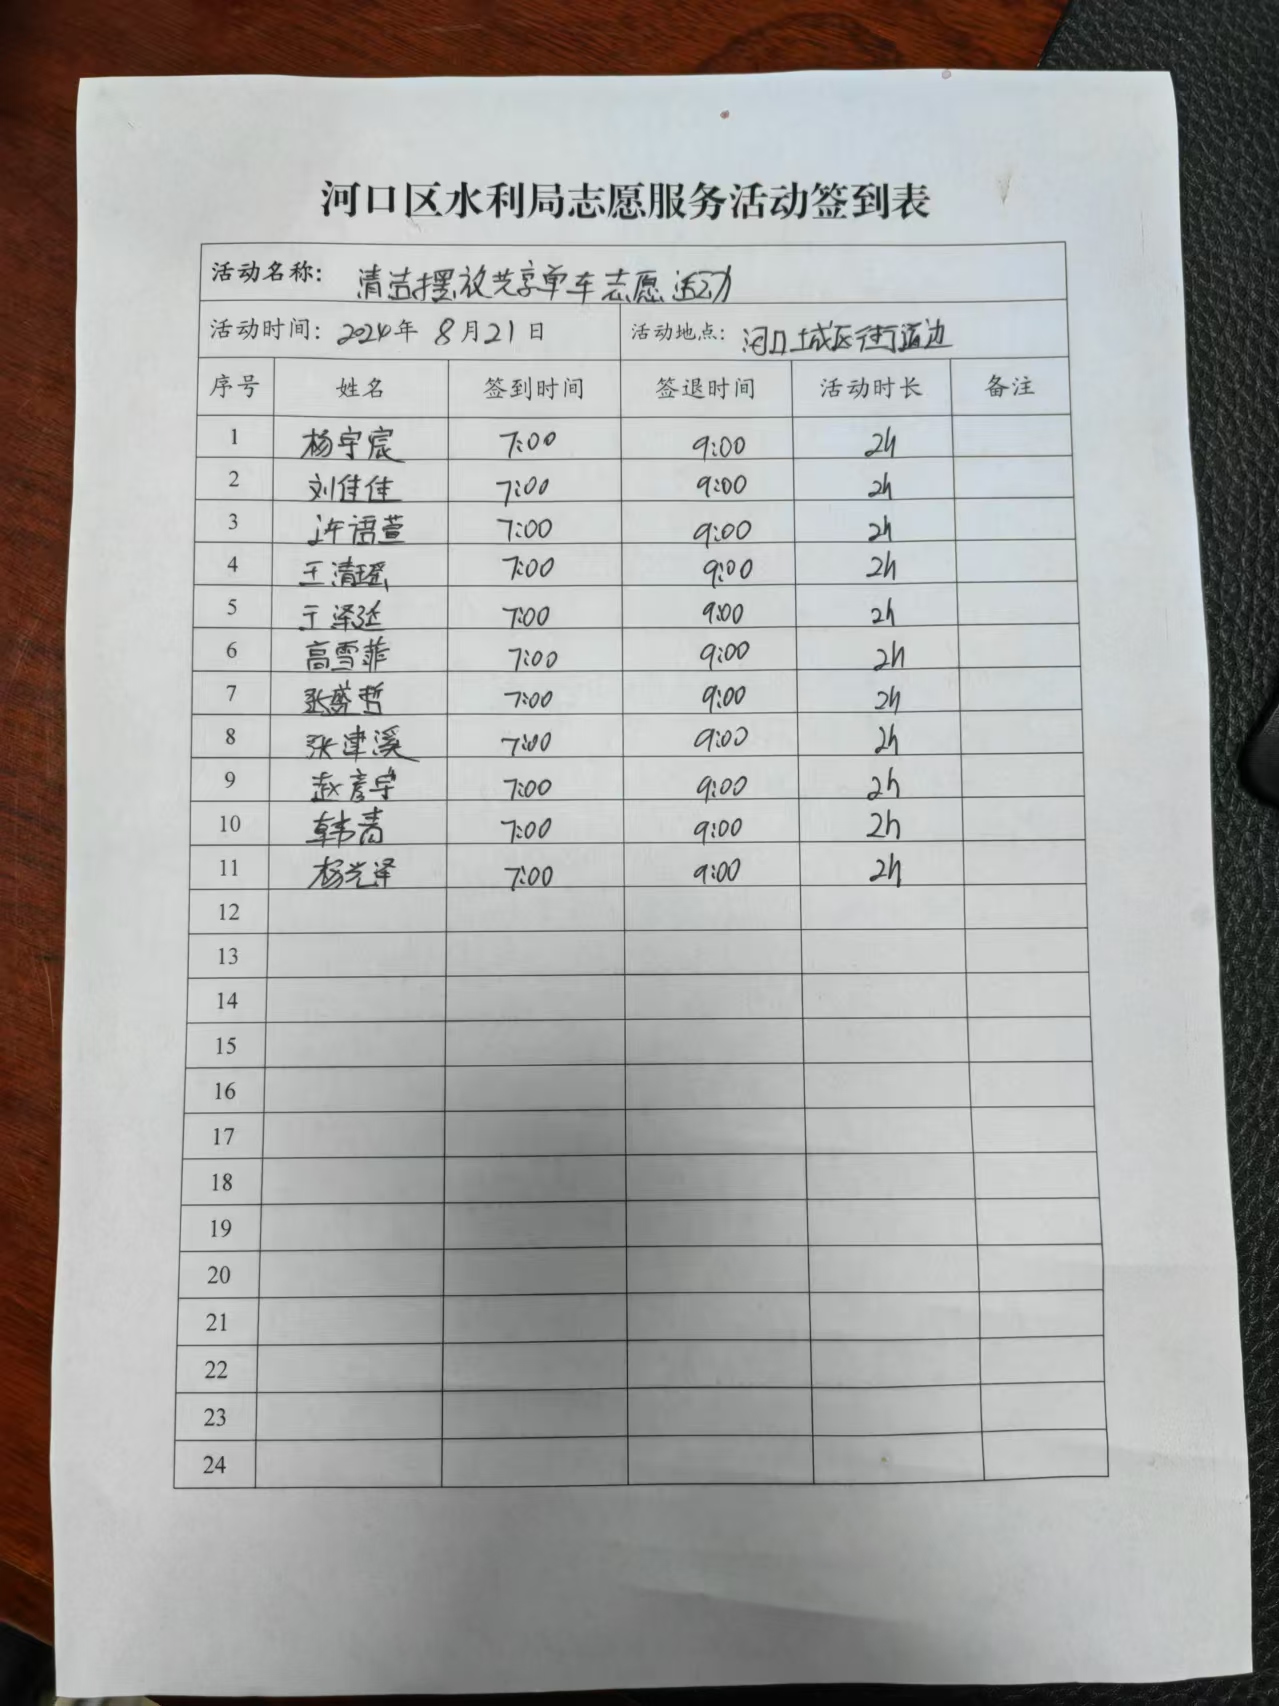 河口区水利局志愿服务活动签到表
活动名称: 清洁摆放共享单车志愿活动
活动时间: 2024年 8月21日 活动地点: 河口城区街道边
序号 姓名 签到时间 签退时间 活动时长 备注
1 杨宇宸 7:00 9:00 2h
2 刘佳佳 7:00 9:00 2h
3 许语萱 7:00 9:00 2h
4 王清瑶 7:00 9:00 2h
5 于泽延 7:00 9:00 2h
6 高雪菲 7:00 9:00 2h
7 7:00 9:00 2h
8 张津溪 7:00 9:00 2h
9 赵彦宇 7:00 9:00 2h
10 韩青 7:00 9:00 2h
11 杨光泽 7:00 9:00 2h
12
13
14
15
16
17
18
19
20
21
22
23
24